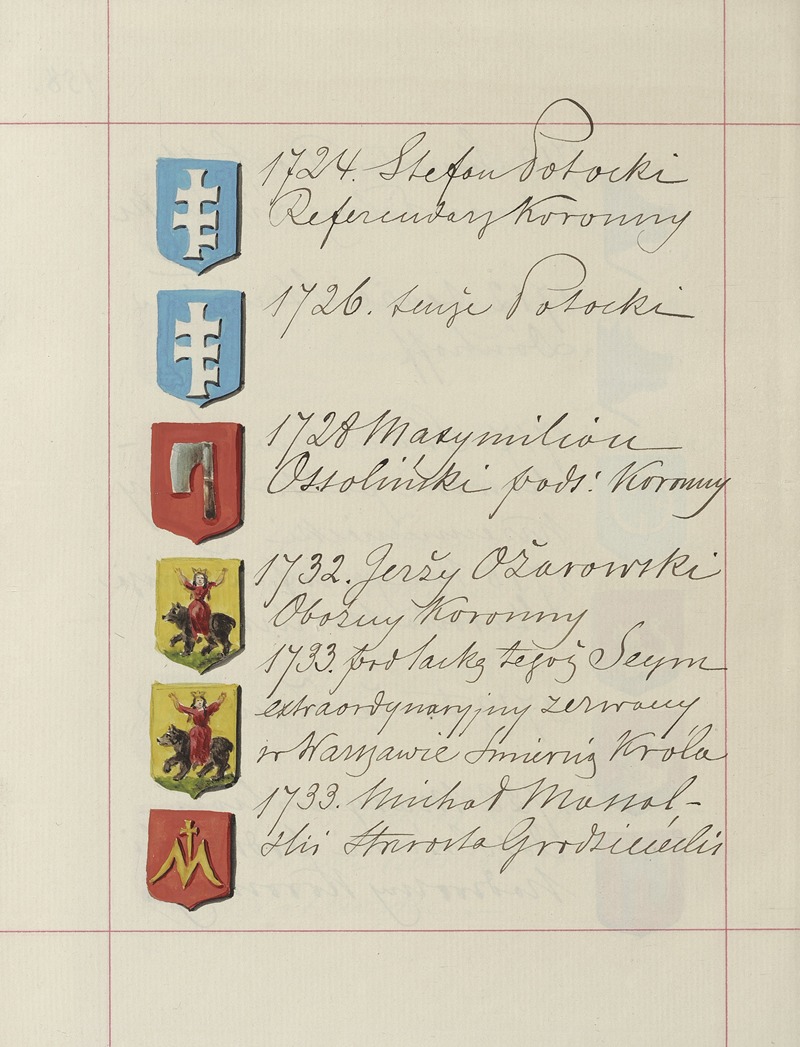 1724. Stefan Potocki
Referendarz Koronny
1726. tenże Potocki
1728 Maxymilian
Ossoliński pods: Koronny
1732. Jerży Ożarowski
Oboźny Koronny
1733. pod laską tegoż Seym
extraordynaryjny zerwany
w Warszawie śmiercią Króla
1733. Michał Massal-
ski Starosta Grodzieński